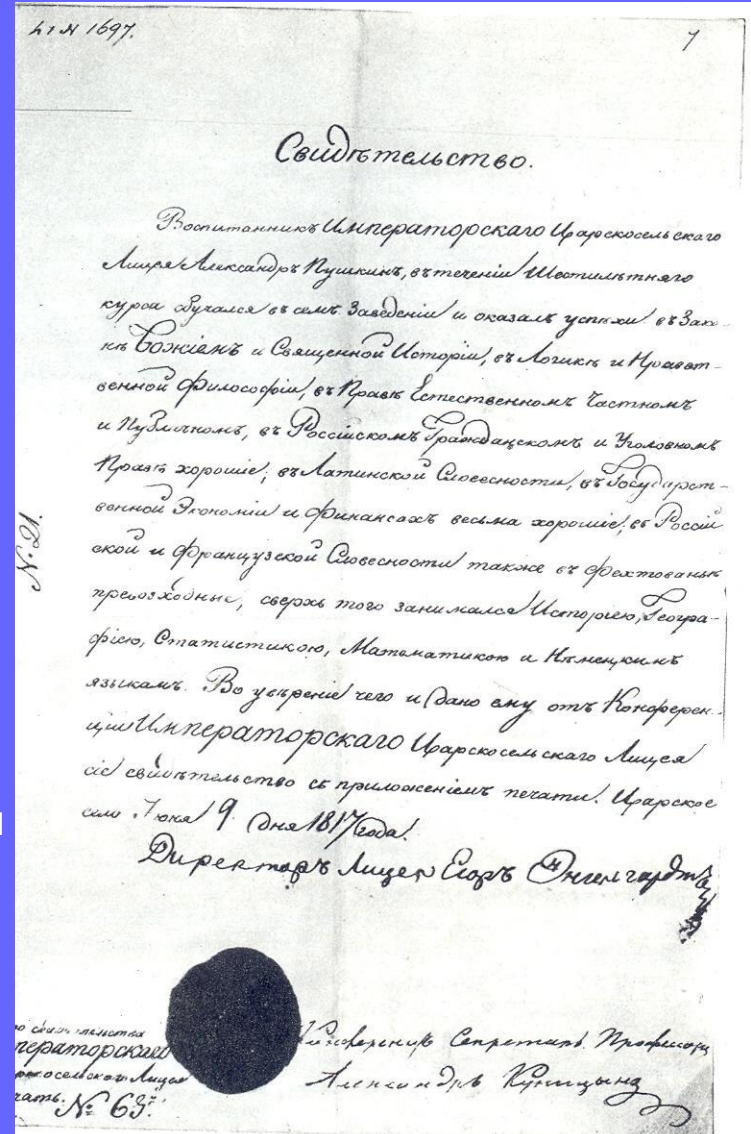 № 1697.
7
Свидѣтельство.
Воспитанникъ Императорскаго Царскосельскаго
Лицея Александръ Пушкинъ, въ теченіи шестилѣтняго
курса обучался въ семъ Заведеніи и оказалъ успѣхи: въ Зако-
нѣ Божіемъ и Священной Исторіи, въ Логикѣ и Нравст-
венной Философіи, въ Правѣ Естественномъ Частномъ
и Публичномъ, въ Россійскомъ Гражданскомъ и Уголовномъ
Правѣ хорошіе; въ Латинской Словесности, въ Государст-
венной Экономіи и Финансахъ весьма хорошіе; въ Россій
ской и Французской Словесности также въ Фехтованьи
превосходные, сверхъ того занимался Исторіею, Геогра-
фіею, Статистикою, Математикою и Нѣмецкимъ
языкамъ. Во увѣреніе чего и дано ему отъ Конферен-
ціи Императорскаго Царскосельскаго Лицея
сіе свидѣтельство съ приложеніемъ печати. Царское
село Іюня 9 дня 1817 года.
Директоръ Лицея Егоръ Энгельгардтъ
N. 21.
Конференцъ Секретарь Профессоръ
Александръ Куницынъ
свидѣтельства
ператорскаго
рскосельскаго Лицея
чать. № 63.